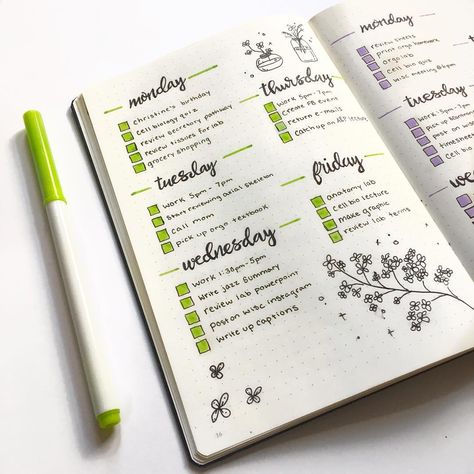 monday
christine's birthday
cell biology quiz
review secretory pathway
review tissues for lab
grocery shopping
tuesday
work 5pm - 7pm
start reviewing axial skeleton
call mom
pick up orgo textbook
wednesday
work 1:30pm-5pm
write jazz summary
review lab powerpoint
post on WISC instagram
write up captions
36
thursday
work 5pm-7pm
create FB event
return e-mails
catch up on
friday
anatomy lab
cell bio lecture
make graphic
review lab terms
monday
review sheets
print orgo homework
orgo lab
cell bio quiz
wisc meeting @ 6pm
tuesday
work 5pm